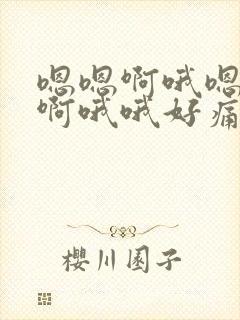 嗯嗯啊哦嗯
啊哦哦好痛
樱川圂子